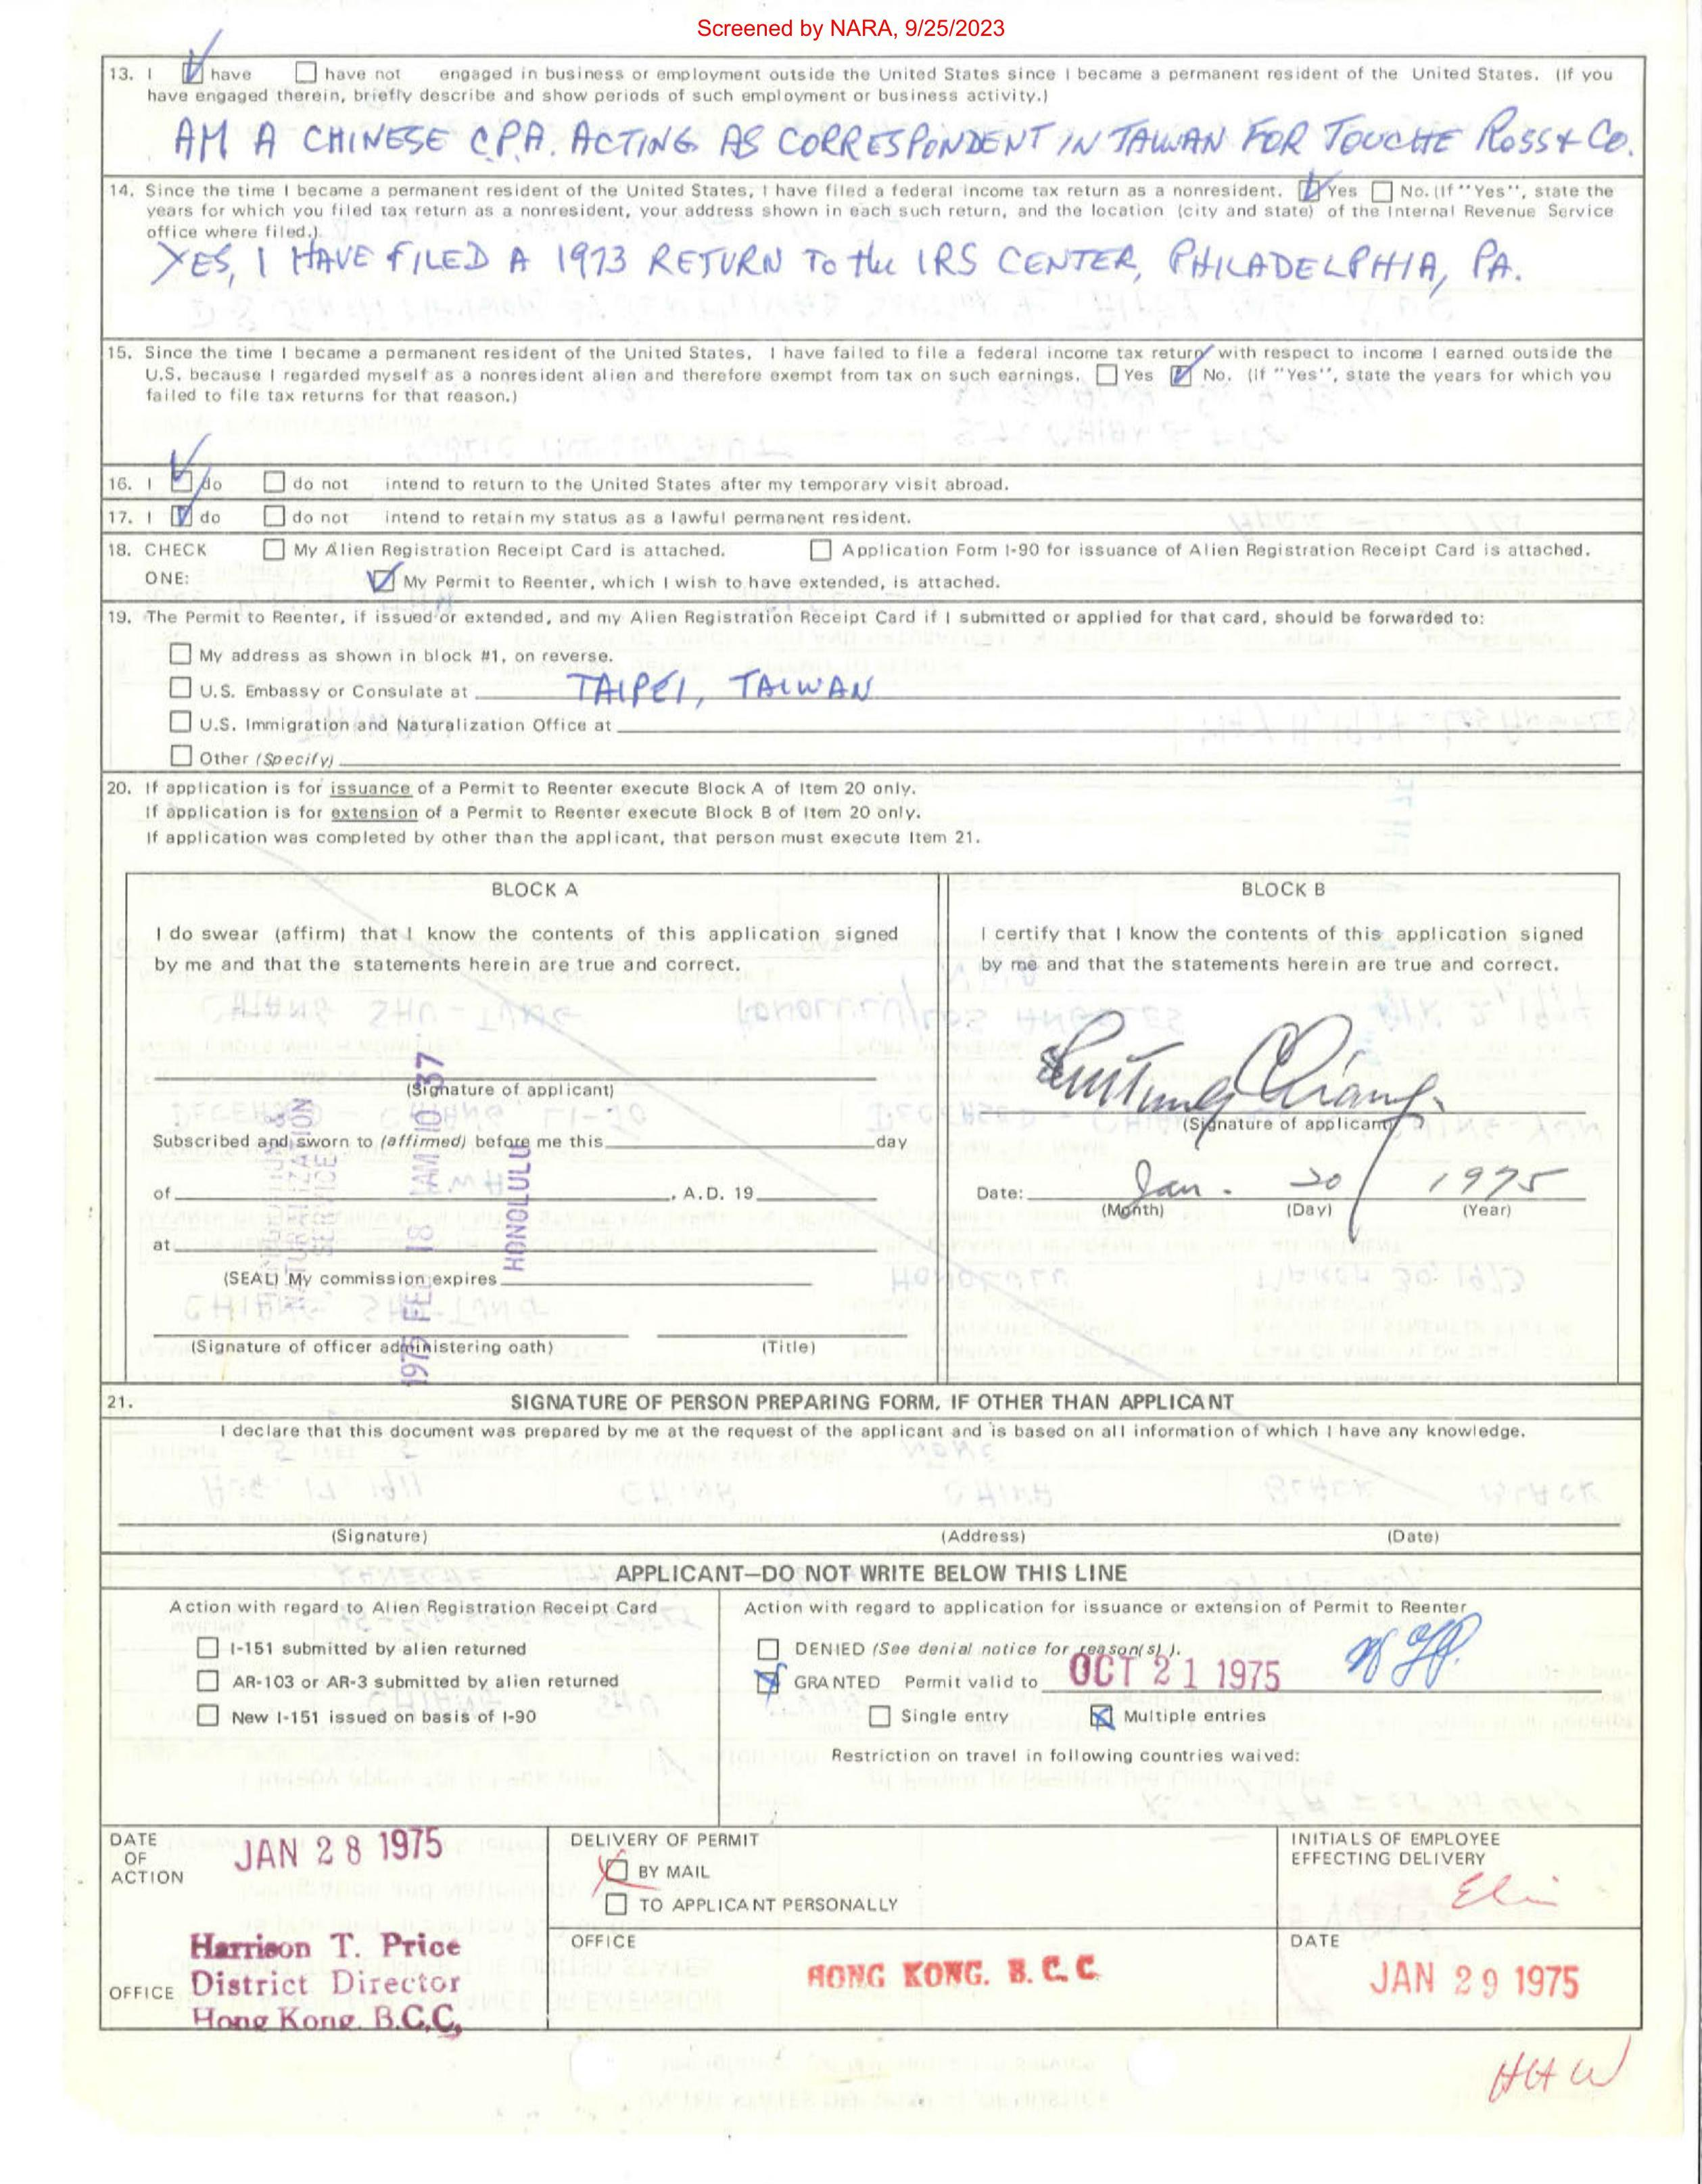 Screened by NARA, 9/25/2023
13. I have have not engaged in business or employment outside the United States since I became a permanent resident of the United States. (If you
have engaged therein, briefly describe and show periods of such employment or business activity.)
AM A CHINESE C.P.A. ACTING AS CORRESPONDENT IN TAIWAN FOR TOUCHE ROSS & CO.
14. Since the time I became a permanent resident of the United States, I have filed a federal income tax return as a nonresident. Yes No. (If "Yes", state the
years for which you filed tax return as a nonresident, your address shown in each such return, and the location (city and state) of the Internal Revenue Service
office where filed.)
YES, I HAVE FILED A 1973 RETURN TO the IRS CENTER, PHILADELPHIA, PA.
15. Since the time I became a permanent resident of the United States, I have failed to file a federal income tax return with respect to income I earned outside the
U.S. because I regarded myself as a nonresident alien and therefore exempt from tax on such earnings. Yes No. (If "Yes", state the years for which you
failed to file tax returns for that reason.)
16. I do do not intend to return to the United States after my temporary visit abroad.
17. I do do not intend to retain my status as a lawful permanent resident.
18. CHECK My Alien Registration Receipt Card is attached. Application Form I-90 for issuance of Alien Registration Receipt Card is attached.
ONE: My Permit to Reenter, which I wish to have extended, is attached.
19. The Permit to Reenter, if issued or extended, and my Alien Registration Receipt Card if I submitted or applied for that card, should be forwarded to:
My address as shown in block #1, on reverse.
U.S. Embassy or Consulate at TAIPEI, TAIWAN
U.S. Immigration and Naturalization Office at
Other (Specify)
20. If application is for issuance of a Permit to Reenter execute Block A of Item 20 only.
If application is for extension of a Permit to Reenter execute Block B of Item 20 only.
If application was completed by other than the applicant, that person must execute Item 21.
BLOCK A
I do swear (affirm) that I know the contents of this application signed
by me and that the statements herein are true and correct.
(Signature of applicant)
Subscribed and sworn to (affirmed) before me this day
of , A.D. 19
at
(SEAL) My commission expires
(Signature of officer administering oath) (Title)
NATURALIZATION
SERVICE
1975 FEB 18 AM 10 37
HONOLULU
BLOCK B
I certify that I know the contents of this application signed
by me and that the statements herein are true and correct.
Shutung Chiang
(Signature of applicant)
Date: Jan. 20 1975
(Month) (Day) (Year)
21. SIGNATURE OF PERSON PREPARING FORM, IF OTHER THAN APPLICANT
I declare that this document was prepared by me at the request of the applicant and is based on all information of which I have any knowledge.
(Signature) (Address) (Date)
APPLICANT—DO NOT WRITE BELOW THIS LINE
Action with regard to Alien Registration Receipt Card
I-151 submitted by alien returned
AR-103 or AR-3 submitted by alien returned
New I-151 issued on basis of I-90
Action with regard to application for issuance or extension of Permit to Reenter
DENIED (See denial notice for reason(s).
GRANTED Permit valid to OCT 21 1975
Single entry Multiple entries
Restriction on travel in following countries waived:
DATE
OF
ACTION
JAN 28 1975
DELIVERY OF PERMIT
BY MAIL
TO APPLICANT PERSONALLY
INITIALS OF EMPLOYEE
EFFECTING DELIVERY
OFFICE
Harrison T. Price
District Director
Hong Kong. B.C.C.
OFFICE
HONG KONG. B. C. C.
DATE
JAN 29 1975
HHW